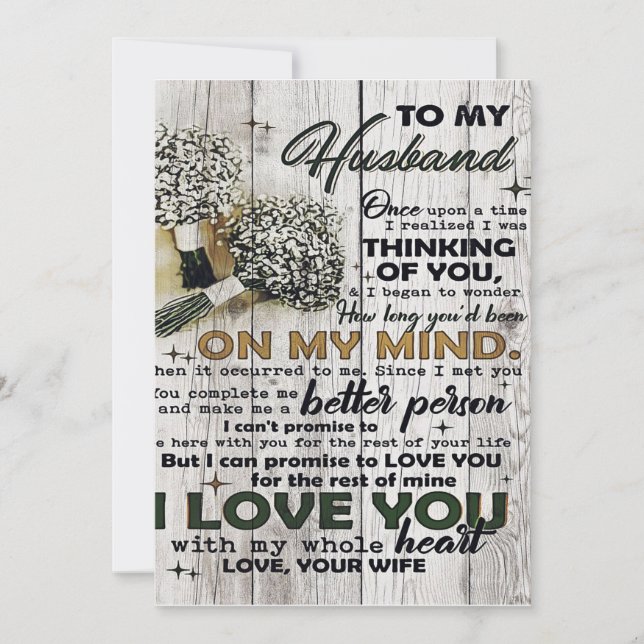 TO MY
Husband
Once upon a time
I realized I was
THINKING
OF YOU,
& I began to wonder
How long you'd been
ON MY MIND.
hen it occurred to me. Since I met you
You complete me
and make me a better person
I can't promise to
e here with you for the rest of your life
But I can promise to LOVE YOU
for the rest of mine
I LOVE YOU
with my whole heart
LOVE, YOUR WIFE